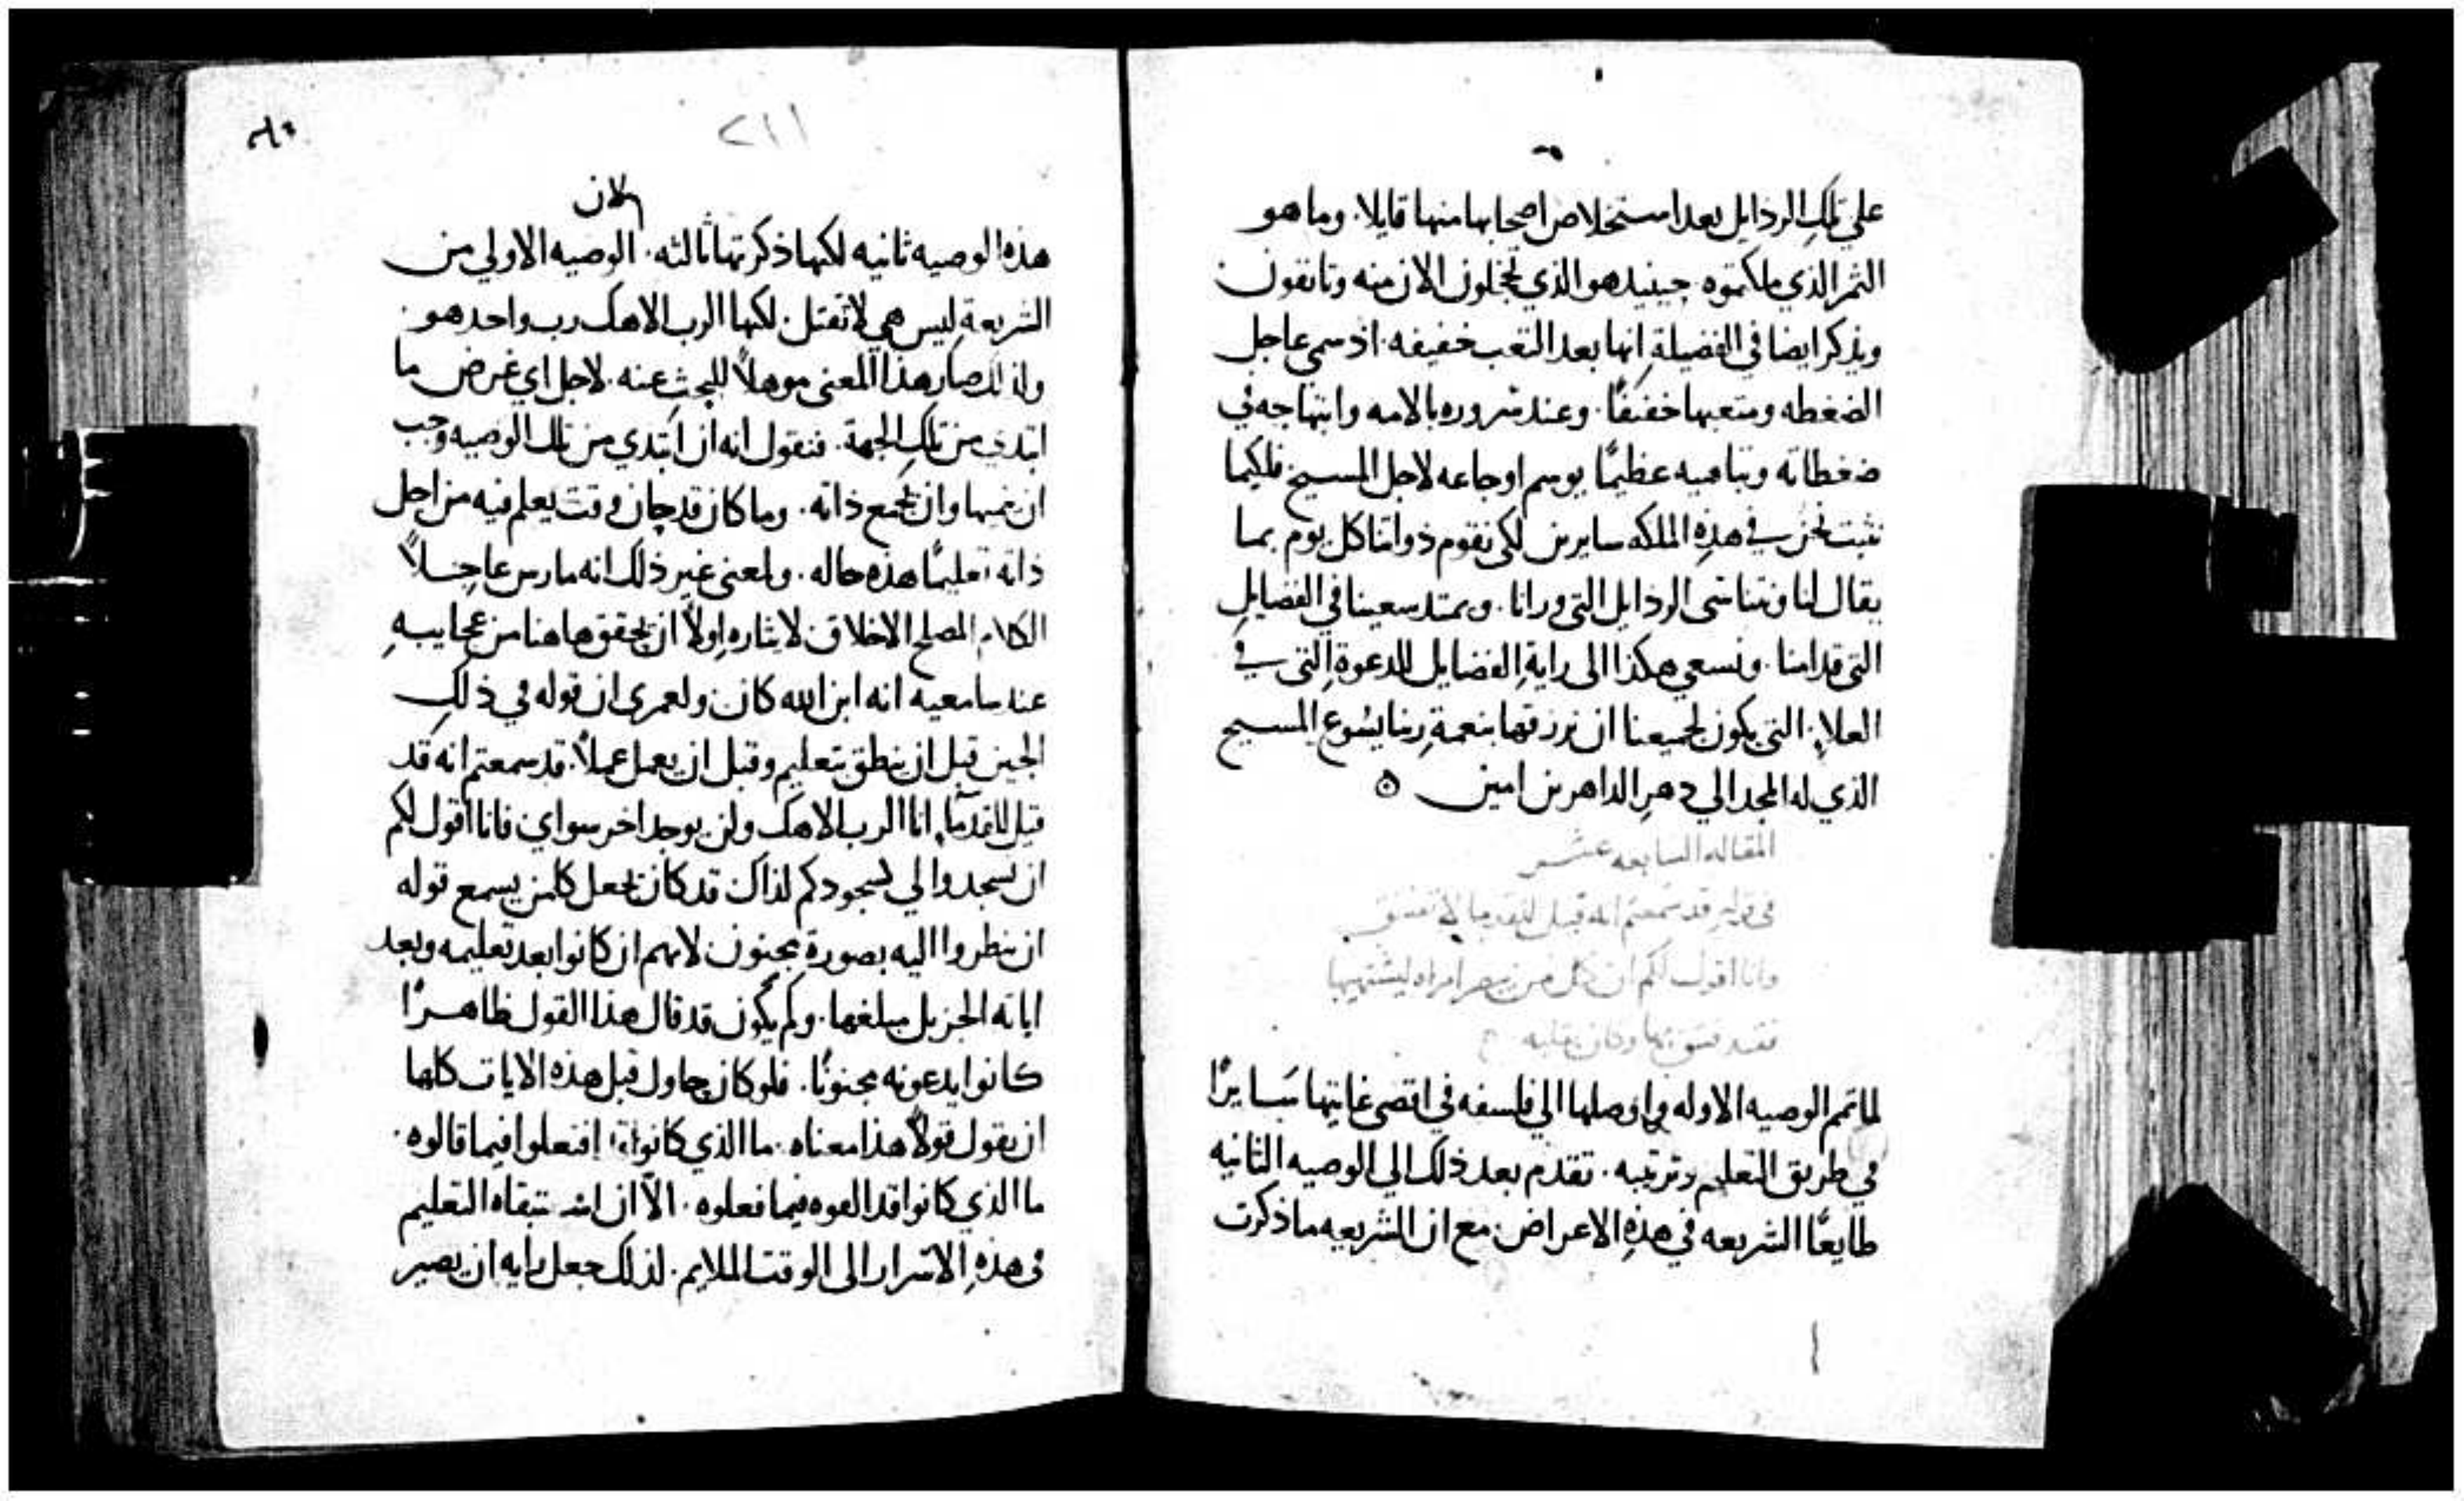 علي تلك الرذايل بعد استخلاص اصحابها منها قايلا. وما هو
الثمر الذي ملكتموه حينيد هو الذي تخجلون الان منه وتانفون
ويذكر ايضا في الفضيلة انها بعد التعب خفيفه. اذ سمي عاجل
الضغطه ومتعبها خفيفًا. وعند سروره بالامه وابتهاجه في
ضغطاته وتباهيه عظيمًا بوسم اوجاعه لاجل المسيح فلكيما
نثبت نحن في هذه الملكه سايرين لكي نقوم ذواتنا كل يوم بما
يقال لنا ونتناسى الرذايل التي ورانا. ويمتد سعينا في الفضايل
التي قدامنا. ونسعي هكذا الى راية الفضايل للدعوة التي في
العلاء. التي يكون لجميعنا ان نرزقها بنعمة ربنا يسوع المسيح
الذي له المجد الي دهر الداهرين امين
المقاله السابعه عشر
في قوله قد سمعتم انه قيل للقدما لا تفسق
وانا اقول لكم ان كل من يبصر امراه ليشتهيها
فقد فسق بها
لما تمم الوصيه الاوله واوصلها الي فلسفه في اقصى غايتها سايرًا
في طريق التعليم وترتيبه. تقدم بعد ذلك الي الوصيه الثانيه
طايعًا الشريعه في هذه الاعراض مع ان الشريعه ما ذكرت
٢١١
لان
هذه الوصيه ثانيه لكنها ذكرتها ثالثه. الوصيه الاولي من
الشريعة ليس هي لا تقتل. لكنها الرب الاهك رب واحد هو.
ولذلك صار هذا المعنى موهلاً للبحث عنه. لاجل اي غرض ما
ابتدي من تلك الجهة. فنقول انه ان ابتدي من تلك الوصيه وجب
ان ينميها وان يجمع ذاته. وما كان قد حان وقت يعلم فيه من اجل
ذاته تعليمًا هذه حاله. ولمعنى غير ذلك انه مارس عاجلاً
الكلام المصلح الاخلاق لايثاره اولاً ان يحقق هاهنا من عجايبه
عند سامعيه انه ابن الله كان ولعمري ان قوله في ذلك
الحين قبل ان ينطق بتعليم وقبل ان يعمل عملاً. قد سمعتم انه قد
قيل للقدما انا الرب الاهك ولن يوجد اخر سواي فانا اقول لكم
ان تسجدوا لي كسجودكم لذاك قد كان يجعل كلمن يسمع قوله
ان ينظروا اليه بصورة مجنون لانهم ان كانوا بعد تعليمه وبعد
اياته الجزيل مبلغها. ولم يكون قد قال هذا القول ظاهرًا
كانوا يدعونه مجنونًا. فلو كان حاول قبل هذه الايات كلها
ان يقول قولاً هذا معناه. ما الذي كانوا افتعلوا فيما قالوه.
ما الذي كانوا قد فيما فعلوه. الا ان استبقاه التعليم
في هذه الاسرار الى الوقت الملايم. لذلك جعل رايه ان يصير